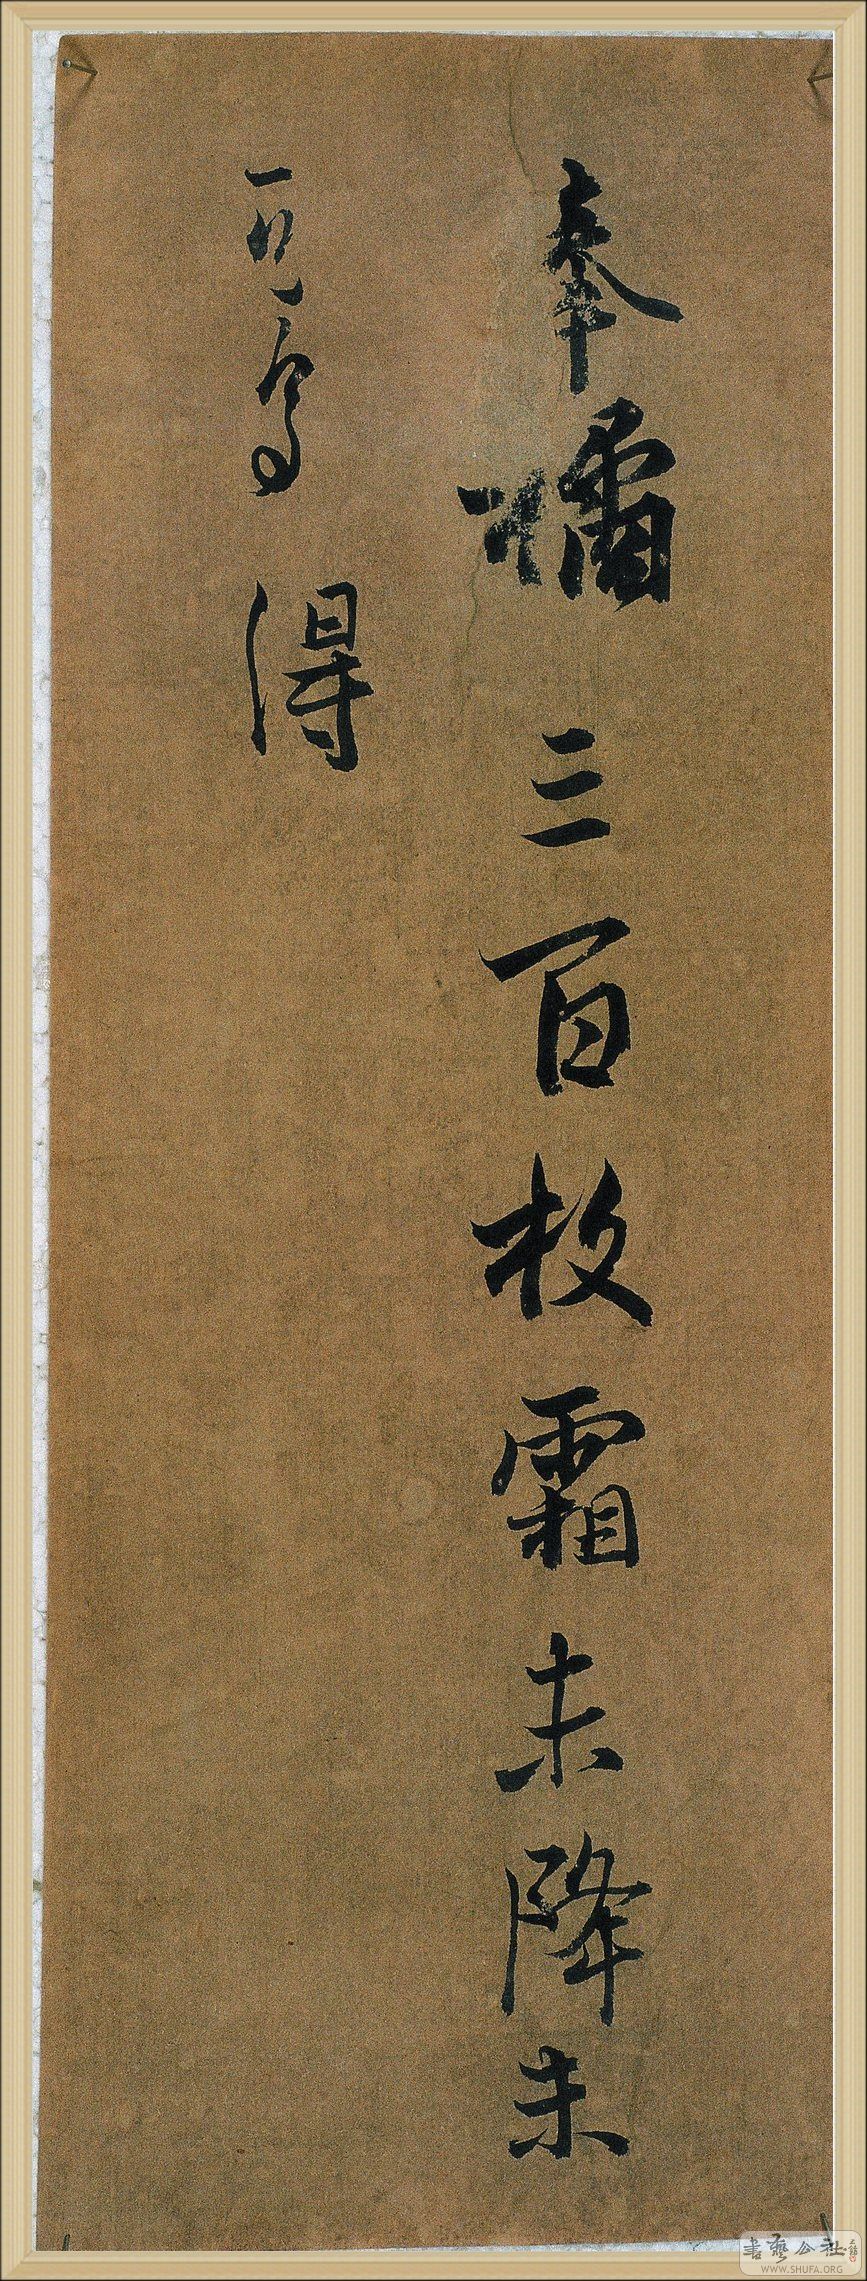 奉橘三百枚霜未降未
可多得
書藝公社
WWW.SHUFA.ORG